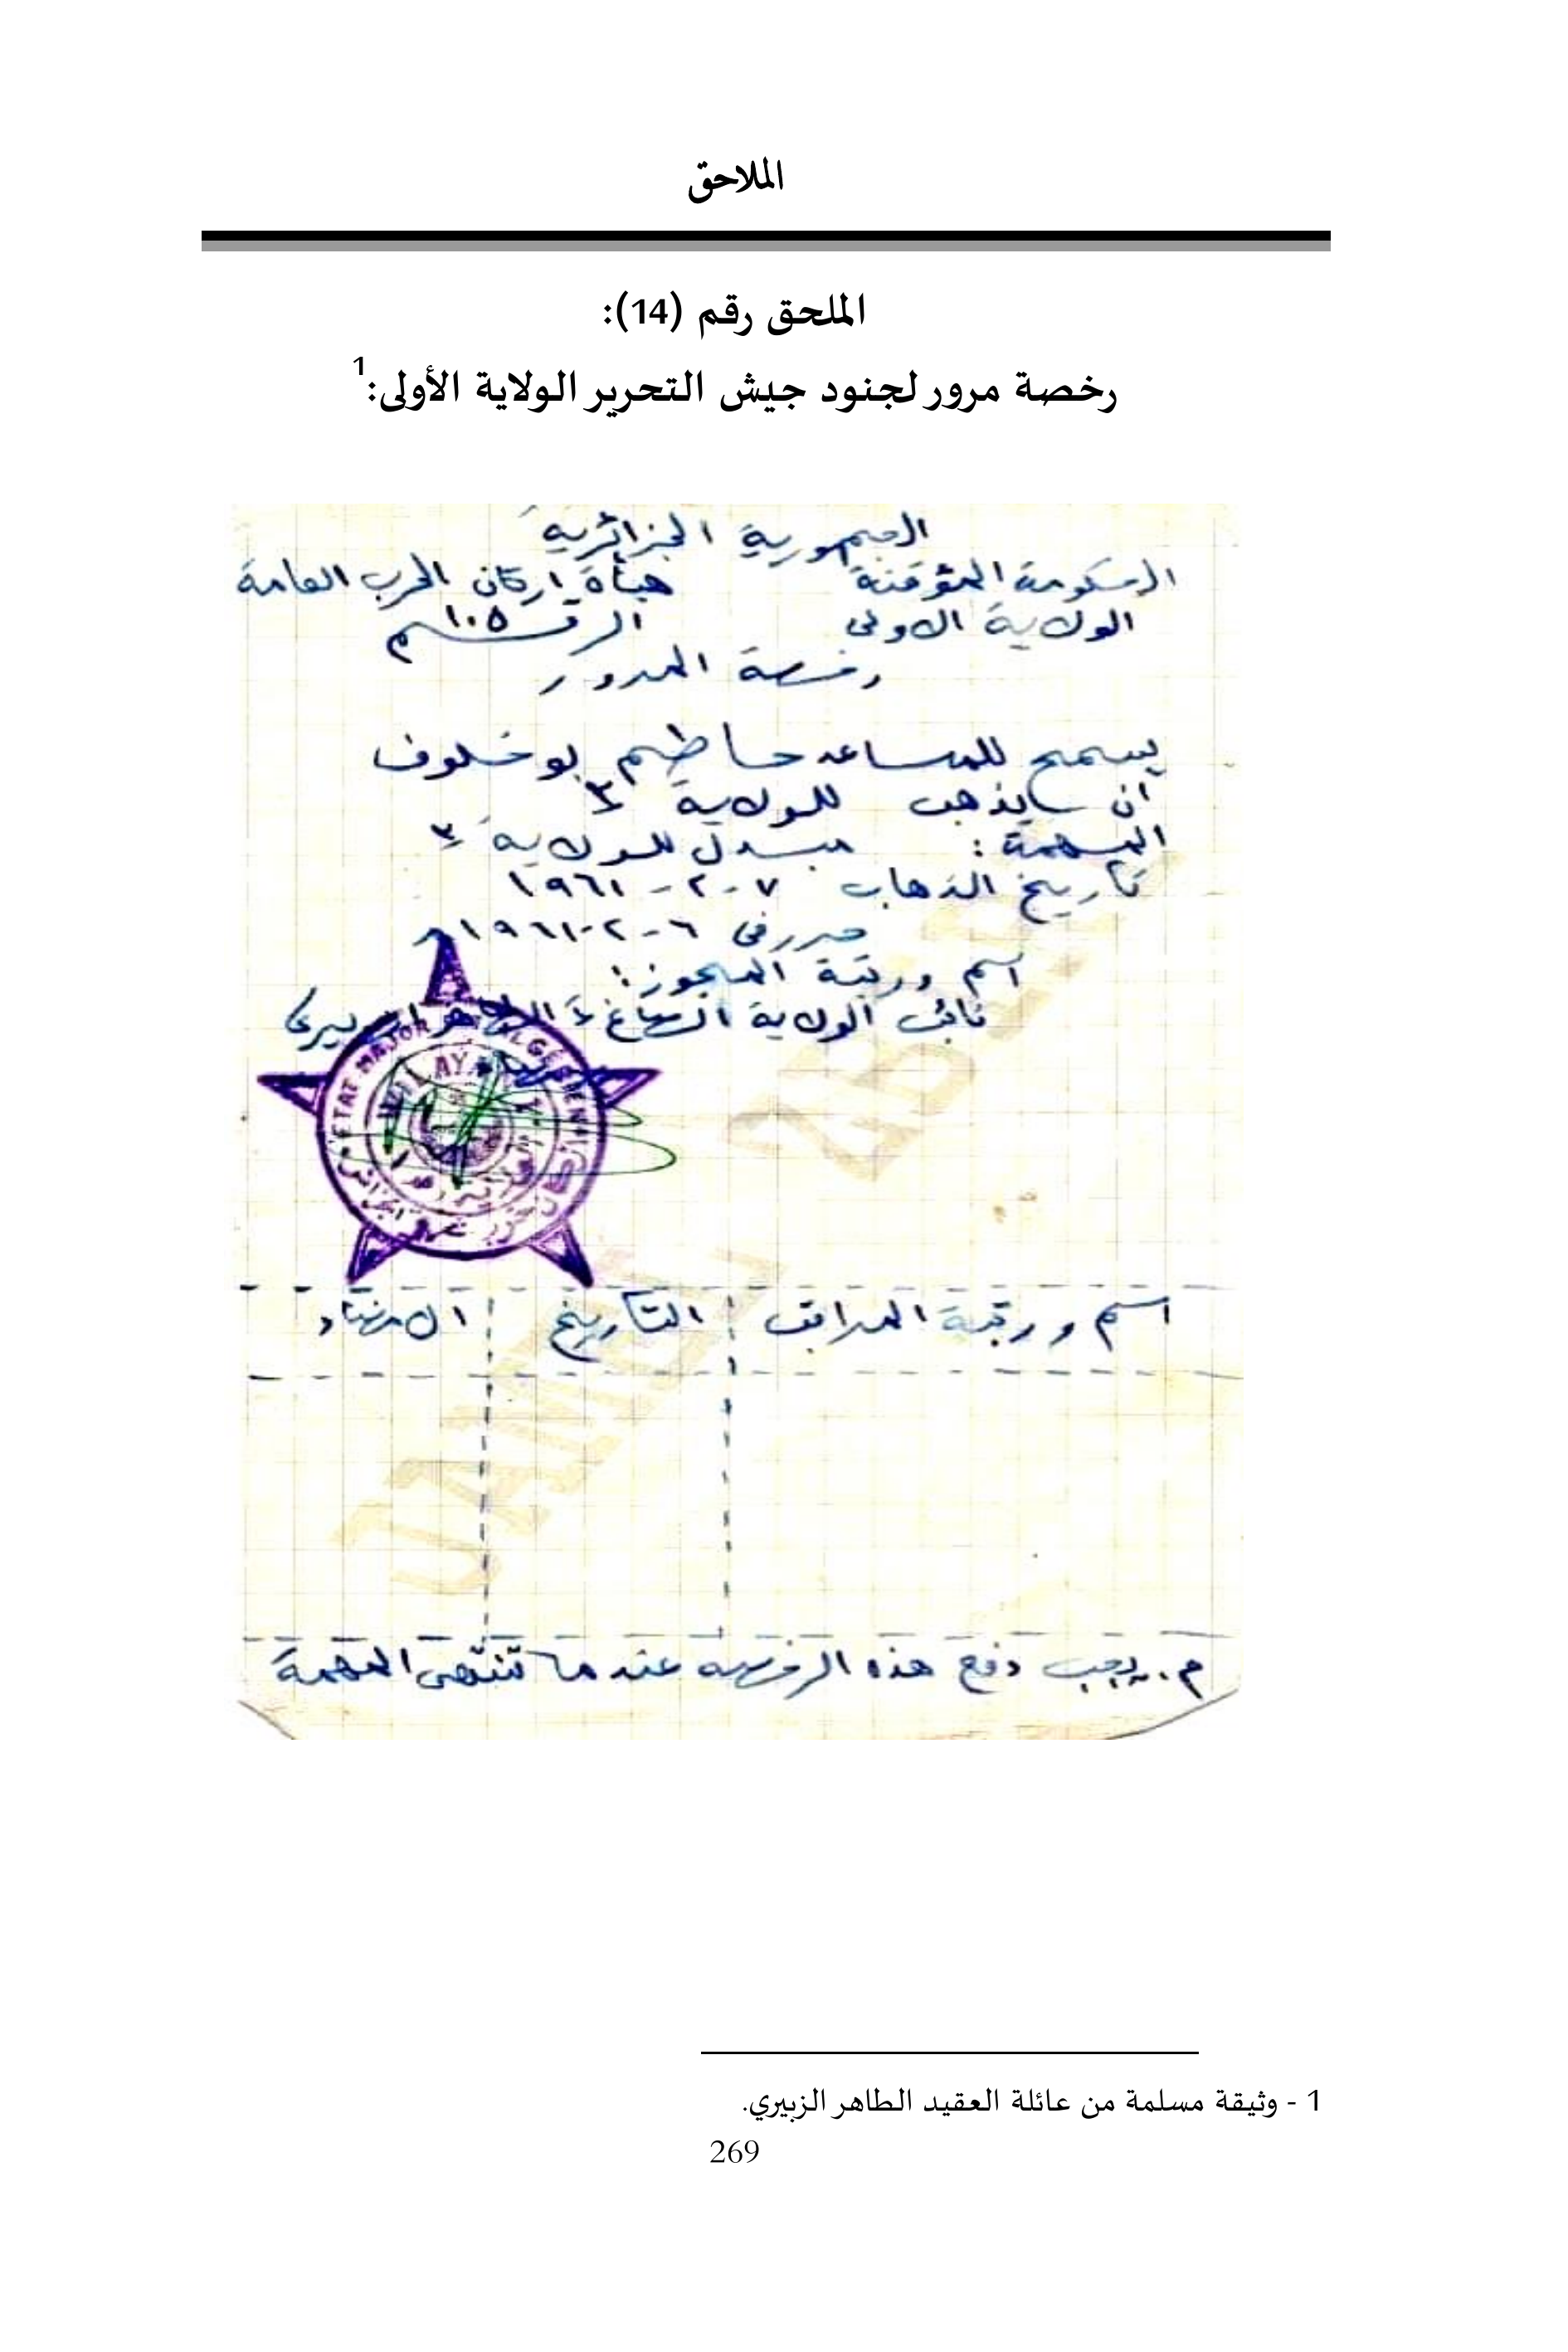 الملاحق
الملحق رقم (14):
رخصة مرور لجنود جيش التحرير الولاية الأولى:1
الجمهورية الجزائرية
الحكومة المؤقتة هيأة اركان الحرب العامة
الولاية الاولى الرقم ١٠٥
رخصة المرور
يسمح للمساعد بوخلوف
ان يذهب للولاية
المهمة : للولاية
تاريخ الذهاب ٧-٢-١٩٦١
حرر في ٦-٢-١٩٦١
اسم ورتبة المجوز:
نائب الولاية الطاهر الزبيري
ETAT MAJOR
WILAYA
اسم ورتبة المراقب التاريخ الامضاء
م. يجب دفع هذه الرخصة عندما تنتهي المهمة
1 - وثيقة مسلمة من عائلة العقيد الطاهر الزبيري.
269